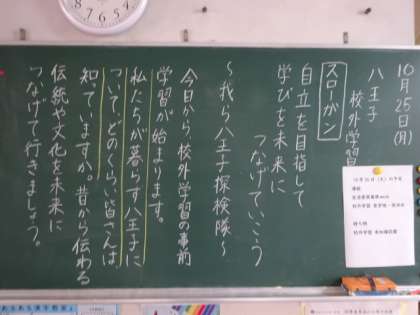 10月25日(月)
八王子
校外学習
スローガン
自立を目指して
学びを未来に
つなげていこう
～我ら八王子探検隊～
今日から、校外学習の事前
学習が始まります。
私たちが暮らす八王子に
ついて、どのくらい皆さんは、
知っていますか。昔から伝わる
伝統や文化を未来に
つなげて行きましょう。